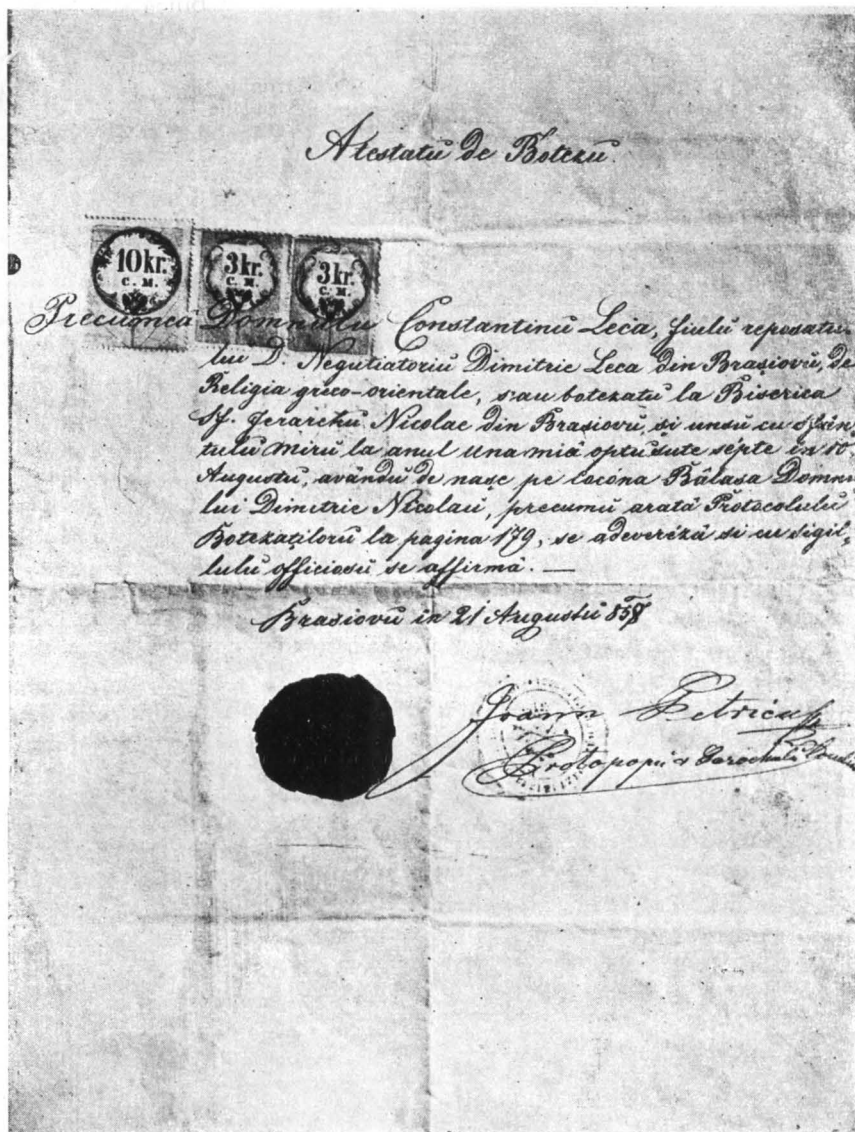 Atestatŭ de Botezŭ.
10 kr. 3 kr. 3 kr.
C. M. C. M. C. M.
Precumcă Domnulu Constantinŭ Leca, fiulu reposatu-
lui D. Negutiatoriŭ Dimitrie Leca din Brașiovŭ, de
Religia greco-orientale, s'au botezatu la Biserica
Sf. Ierarchu Nicolae din Brașiovŭ, și unsŭ cu sfin
tulŭ Mirŭ la anul una miă optŭ sute septe in 10
Augustŭ, avăndŭ de nașe pe cocóna Bălașa Domnu
lui Dimitrie Nicolaŭ, precumŭ arată Protocolulŭ
Botezațilorŭ la pagina 179, se adevereză si cu sigil,
lulŭ officiosŭ se affirmă. —
Brasiovŭ in 21 Augustŭ 857
Ioann Petricu
Protopopŭ